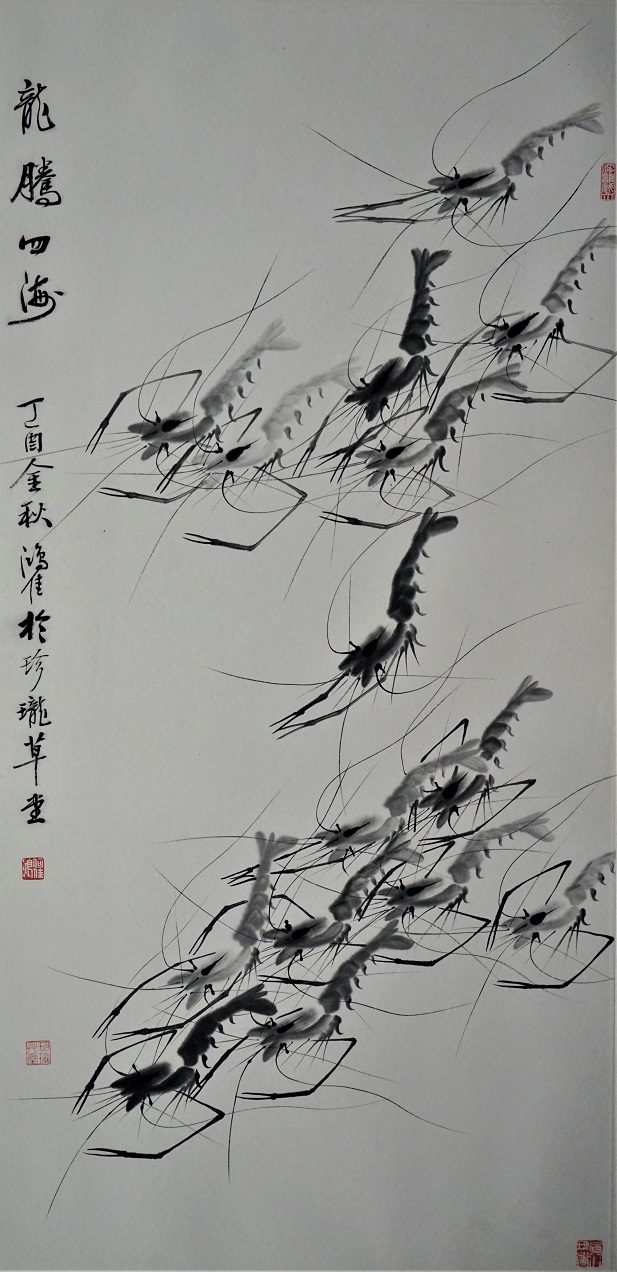 龍騰四海
丁酉金秋鴻隹於珍瓏草堂